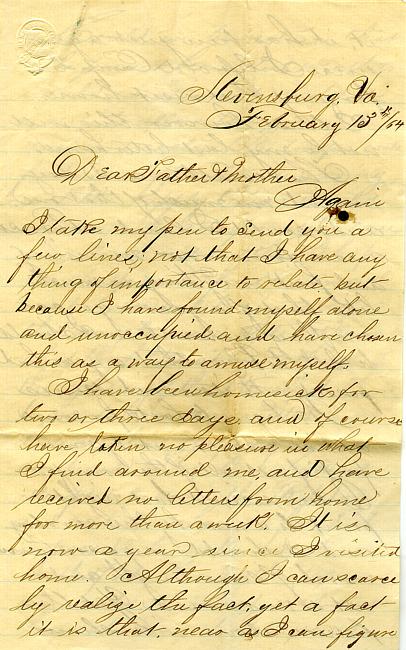 Stevensburg, Va.
February 13th/64
Dear Father & Mother
Again
I take my pen to send you a
few lines; not that I have any
thing of importance to relate but
because I have found myself alone
and unoccupied and have chosen
this as a way to amuse myself.
I have been homesick for
two or three days, and of course
have taken no pleasure in what
I find around me and have
received no letters from home
for more than a week. It is
now a year since I visited
home. Although I can scarce
ly realize the fact, yet a fact
it is that, near as I can figure